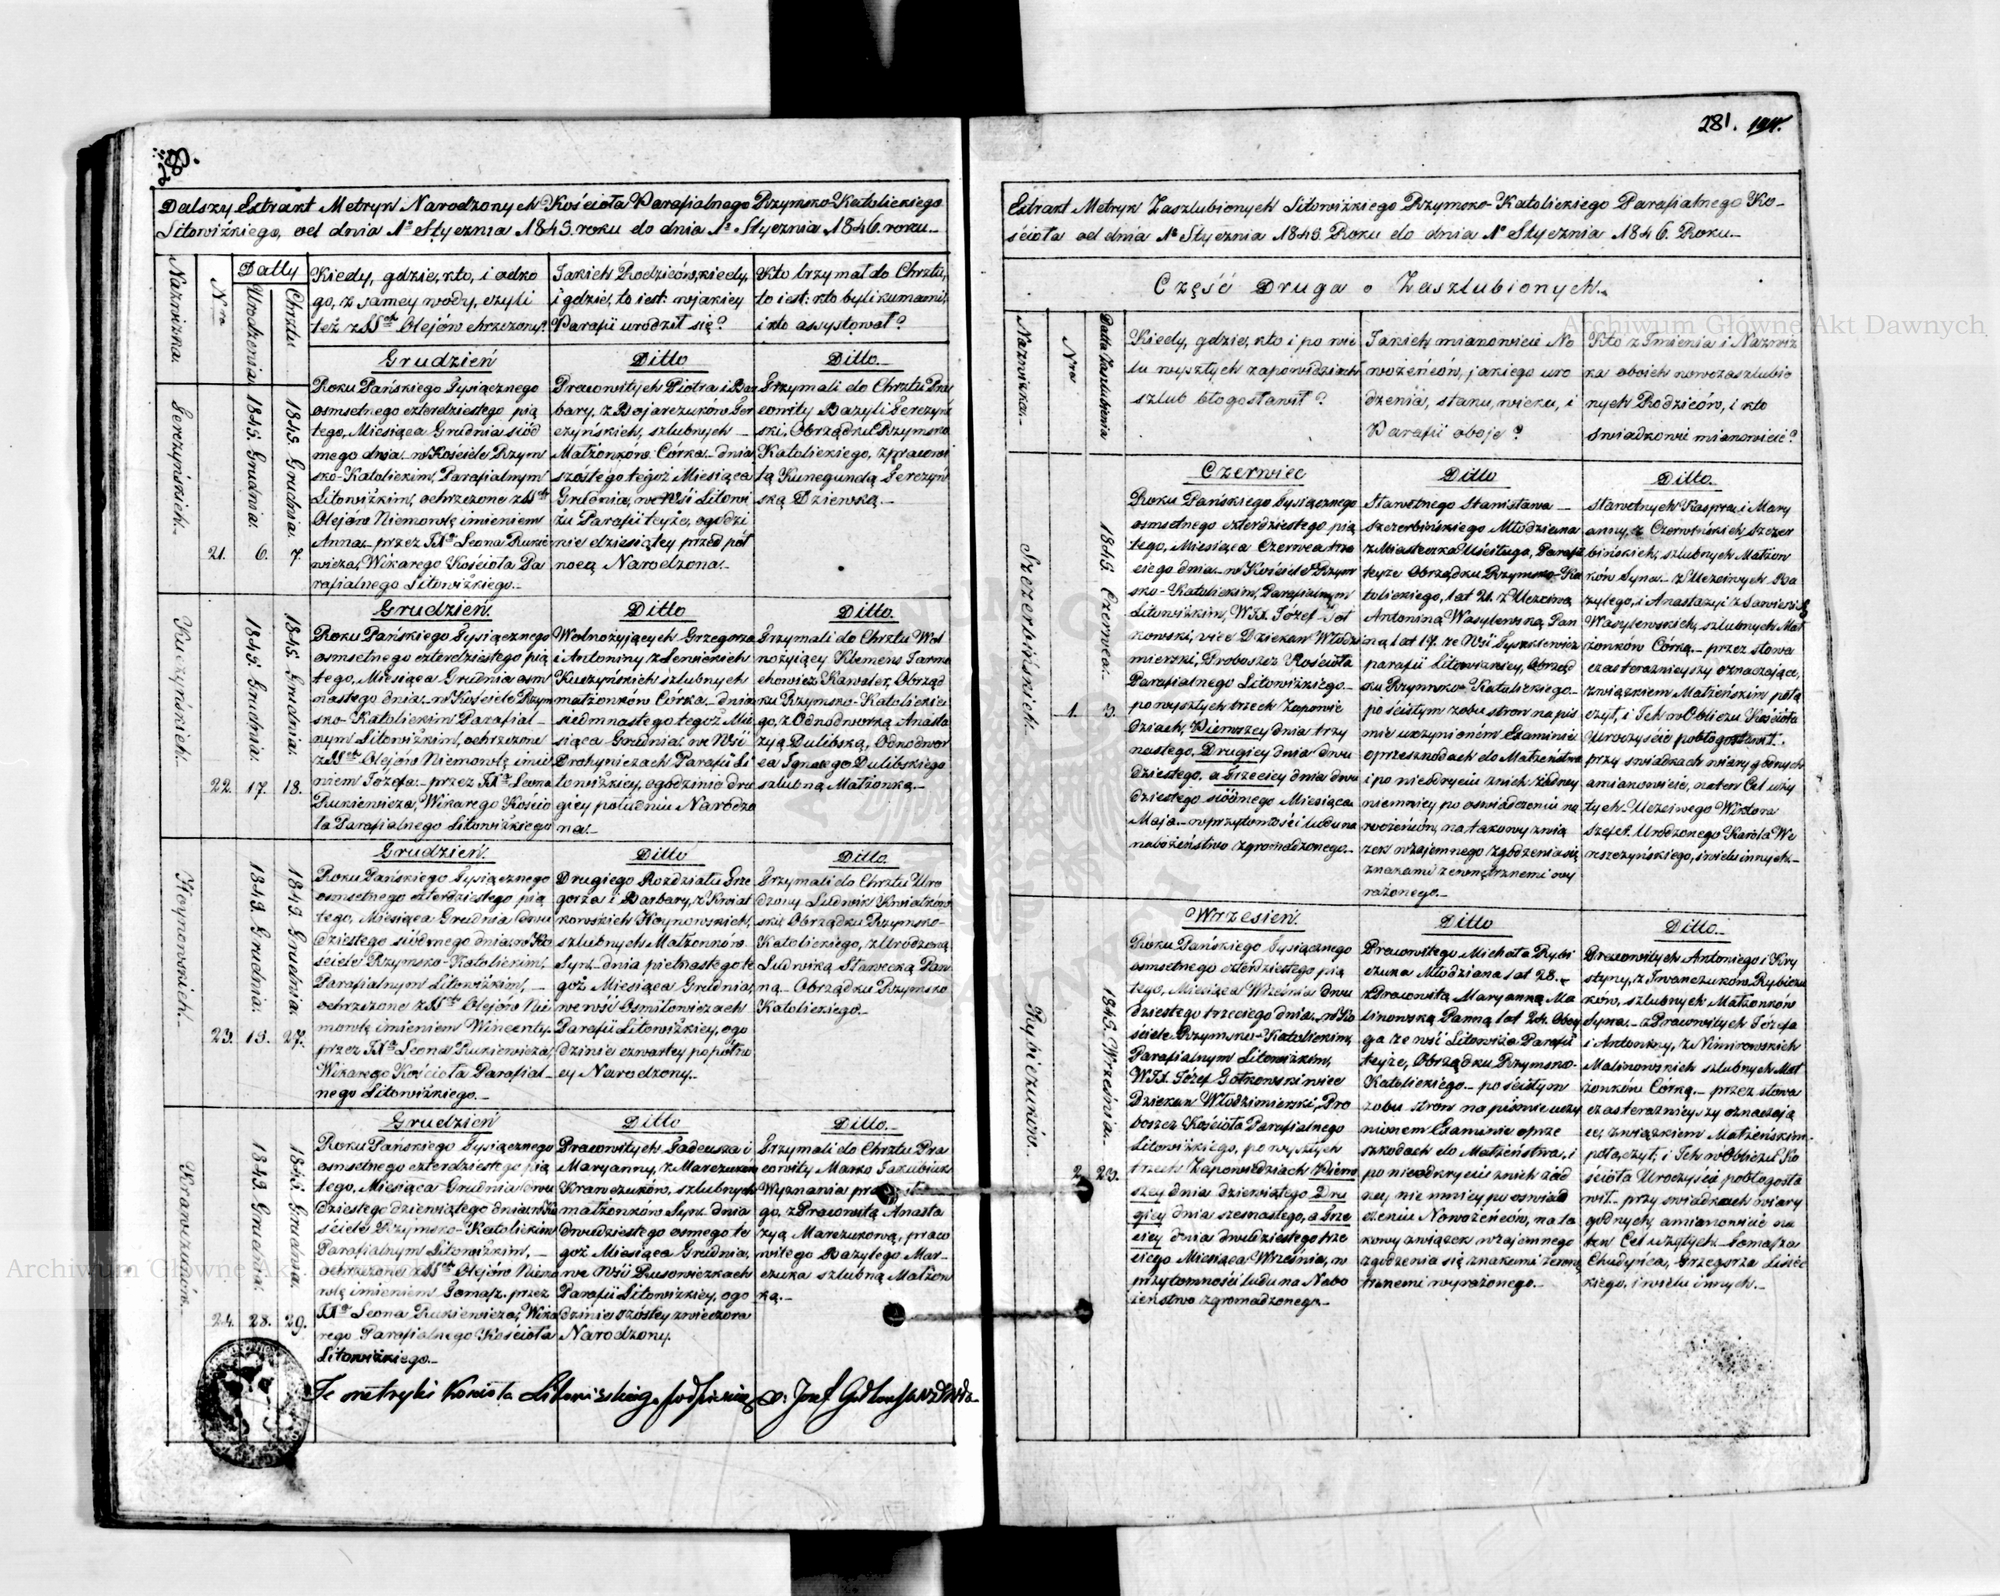 280.
Dalszy Extrakt Metryk Narodzonych Kościoła Parafialnego Rzymsko-Katolickiego
Litowizkiego, od dnia 1º Stycznia 1845. roku do dnia 1º Stycznia 1846. roku
Nazwizka.
Nro
Datty
Urodzenia
Chrztu
Kiedy, gdzie, kto, i adko
go, z samey wody, czyli
też z SSch Olejów chrzczony?
Jakich Rodziców, kiedy,
i gdzie, to iest: w jakiey
Parafii urodził się?
Kto trzymał do Chrztu,
to iest: kto byli kumami,
i kto asystował?
Gerczyńskich.
21.
1845. Grudnia. 6.
1845. Grudnia. 7.
Grudzień
Roku Pańskiego Tysiącznego
osmsetnego czterdziestego pią
tego, Miesiąca Grudnia siód
mego dnia w Kościele Rzym
sko-Katolickim, Parafialnym
Litowizkim, ochrzczono z SSch
Olejów Niemowlę imieniem
Anna przez Xa Leona Rukie
wicza, Wikarego Kościoła Pa
rafialnego Litowizkiego.
Ditto
Pracowitych Piotra i Bar
bary, z Bojarczuków Ger
czyńskich, szlubnych
Małżonków Córka dnia
szóstego tegoż Miesiąca
Grudnia, we Wsi Litowi
żu Parafii teyże, o godzi
nie dziesiątey przed pół
nocą Narodzona.
Ditto.
Trzymali do Chrztu Pra
cowity Bazyli Gerczyń
ski, Obrządku Rzymsko
Katolickiego, z pracowi
tą Kunegundą Gerczyń
ską Dziewką.
Kuczyńskich.
22.
1845. Grudnia. 17.
1845. Grudnia. 18.
Grudzień.
Roku Pańskiego Tysiącznego
osmsetnego czterdziestego pią
tego, Miesiąca Grudnia osm
nastego dnia w Kościele Rzym
sko-Katolickim Parafial
nym Litowizkim, ochrzczono
z SSch Olejów Niemowlę imie
niem Józefa przez Xa Leona
Rukiewicza, Wikarego Kościo
ła Parafialnego Litowizkiego
Ditto
Wolnożyjących Grzegorza
i Antoniny z Lewickich
Kuczyńskich szlubnych
małżonków Córka dnia
siedmnastego tegoż Mie
siąca Grudnia, we Wsi
Drohyniczach Parafii Li
towizkiey, o godzinie dru
giey południu Narodzo
na.
Ditto.
Trzymali do Chrztu Wol
nożyiący Klemens Jarmo
chowicz Kawaler, Obrząd
ku Rzymsko-Katolickie
go, z Odnodworką Anasta
zyą Dulibską, Odnodwor
ca Ignacego Dulibskiego
szlubną Małżonką.
Hoynowskich.
23.
1845. Grudnia. 15.
1845. Grudnia. 27.
Grudzień.
Roku Pańskiego Tysiącznego
osmsetnego czterdziestego pią
tego, Miesiąca Grudnia dwu
dziestego siódmego dnia w Ko
ściele Rzymsko-Katolickim,
Parafialnym Litowizkim,
ochrzczono z SSch Olejów Nie
mowlę imieniem Wincenty
przez Xa Leona Rukiewicza,
Wikarego Kościoła Parafial
nego Litowizkiego.
Ditto
Drugiego Rozdziału Grze
gorza i Barbary, z Kwiat
kowskich Hoynowskich,
szlubnych Małżonków
Syn dnia pietnastego te
goż Miesiąca Grudnia,
we wsi Osmiłowiczach
Parafii Litowizkiey, o go
dzinie czwartey po połno
cy Narodzony.
Ditto.
Trzymali do Chrztu Uro
dzony Ludwik Kwiatkow
ski Obrządku Rzymsko-
Katolickiego, z Urodzoną
Ludwiką Sławecką Pan
ną Obrządku Rzymsko
Katolickiego.
Krawczuków.
24.
1845. Grudnia. 28.
1845. Grudnia. 29.
Grudzień
Roku Pańskiego Tysiącznego
osmsetnego czterdziestego pią
tego, Miesiąca Grudnia dwu
dziestego dziewiątego dnia w Ko
ściele Rzymsko-Katolickim
Parafialnym Litowizkim,
ochrzczono z SSch Olejów Niemo
wlę imieniem Tomasz przez
Xa Leona Rukiewicza, Wika
rego Parafialnego Kościoła
Litowizkiego.
Ditto
Pracowitych Tadeusza i
Maryanny, z Marczuków
Krawczuków, szlubnych
małżonków Syn dnia
dwudziestego osmego te
goż Miesiąca Grudnia,
we Wsi Rusowiczkach
Parafii Litowizkiey, o go
dzinie szóstey z wieczora
Narodzony.
Ditto.
Trzymali do Chrztu Pra
cowity Marko Jakubiuk
Wyznania
go, z Pracowitą Anasta
zyą Marczukową, praco
witego Bazylego Mar
czuka szlubną Małżon
ką.
Te metryki Kościoła Litowizkiego podpisuię
281.
Extrakt Metryk Zaszlubionych Litowizkiego Rzymsko-Katolickiego Parafialnego Ko-
ścioła od dnia 1º Stycznia 1845 Roku do dnia 1º Stycznia 1846. Roku
Część Druga o Zaszlubionych.
Nazwizka.
Nro
Datta Zaszlubienia
Kiedy, gdzie, kto i po wie
lu wyszłych zapowidziach
szlub błogosławił?
Jakich mianowicie No
wożeńców, jakiego uro
dzenia, stanu, wieku, i
Parafii oboje?
Kto z Imienia i Nazwiz
ka oboich nowozaszlubio
nych Rodziców, i kto
świadkowie mianowicie?
Szczerbińskich.
1.
1845. Czerwca. 3.
Czerwiec
Roku Pańskiego Tysiącznego
osmsetnego czterdziestego pią
tego, Miesiąca Czerwca trze
ciego dnia w Kościele Rzym
sko-Katolickim, Parafialnym
Litowizkim, WJX. Józef Got
kowski, vice Dziekan Włodzi
mierski, Proboszcz Kościoła
Parafialnego Litowizkiego
po wyszłych trzech Zapowie
dziach, Pierwszey dnia trzy
nastego, Drugiey dnia dwu
dziestego, a Trzeciey dnia dwu
dziestego siódmego Miesiąca
Maja w przytomności ludu na
nabożeństwo zgromadzonego.
Ditto
Sławetnego Stanisława
Szczerbińskiego Młodziana
z Miasteczka Uściługa, Parafii
teyże Obrządku Rzymsko-Ka
tolickiego, lat 21. z Uczciwą
Antoniną Wasylewską Pan
ną lat 17. ze Wsi Tyszkiewicz
parafii Litowizkiey, Obrząd
ku Rzymsko-Katolickiego
po ścisłym z obu stron na pis
mie uczynionem Examinie
o przeszkodach do Małżeństwa
i po nieodkryciu z nich żadney
niemniey po oświadczeniu no
wożeńców, na takowy zwią
zek wzajemnego zgodzenia się
znakami zewnętrznemi wy
rażonego.
Ditto.
Sławetnych Kaspra i Mary
anny, z Czerwińskich Szczer
bińskich, szlubnych Małżon
ków Syna z Uczciwych Ba
zylego, i Anastazyi z Sawickich
Wasylewskich, szlubnych Mał
żonków Córką przez słowa
czasteraznieyszy oznaczające,
związkiem Małżeńskim połą
czył, i Ich w Obliczu Kościoła
Uroczyście pobłogosławił.
przy świadkach wiary godnych
a mianowicie, na ten Cel uży
tych Uczciwego Wiktora
Szejer. Urodzonego Karola We
reszczyńskiego, i wielu innych
Rybiczuków.
2.
1845. Września. 23.
Wrzesień.
Roku Pańskiego Tysiącznego
osmsetnego czterdziestego pią
tego, Miesiąca Września dwu
dziestego trzeciego dnia w Ko
ściele Rzymsko-Katolickim,
Parafialnym Litowizkim,
WJX. Józef Gotkowski wice
Dziekan Włodzimierski, Pro
boszcz Kościoła Parafialnego
Litowizkiego, po wyszłych
trzech Zapowiedziach Pierw
szey dnia dziewiątego Dru
giey dnia szesnastego, a Trze
ciey dnia dwudziestego trze
ciego Miesiąca Września, w
przytomności ludu na Nabo
żeństwo zgromadzonego.
Ditto
Pracowitego Michała Rybi
czuka Młodziana lat 28.
z Pracowitą Maryanną Ma
linowską Panną lat 24. Oboy
ga ze wsi Litowiża Parafii
teyże, Obrządku Rzymsko-
Katolickiego po ścisłym
z obu stron na pismie uczy
nionem Examinie o prze
szkodach do Małżeństwa, i
po nieodkryciu z nich żad
ney, niemniey po oswiad
czeniu Nowożeńców, na ta
kowy związek wzajemnego
zgodzenia się znakami zewnę
trznemi wyrażonego.
Ditto.
Pracowitych Antoniego i Kry
styny, z Iwanczuków Rybiczu
ków, szlubnych Małżonków
Syna z Pracowitych Józefa
i Antoniny, z Nimirowskich
Malinowskich szlubnych Mał
żonków Córką przez słowa
czasteraznieyszy oznaczają
ce, związkiem Małżeńskim
połączył, i Ich w Obliczu Ko
ścioła Uroczyście pobłogosła
wił przy świadkach wiary
godnych, a mianowicie na
ten Cel użytych Tomasza
Chudyńca, Grzegorza Lisiec
kiego, i wielu innych.
Archiwum Główne Akt Dawnych
Archiwum Główne Ak